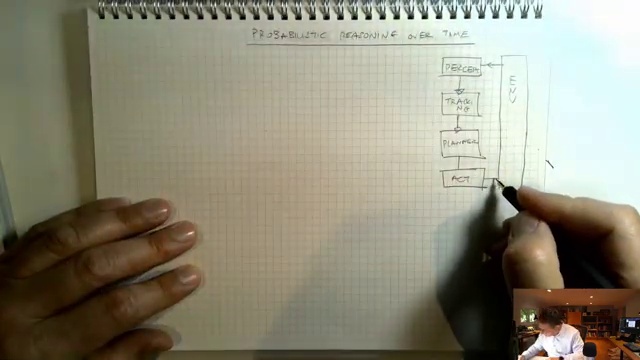 PROBABILISTIC REASONING OVER TIME
PERCEPT
ENV
TRACKI
NG
PLANNER
ACT